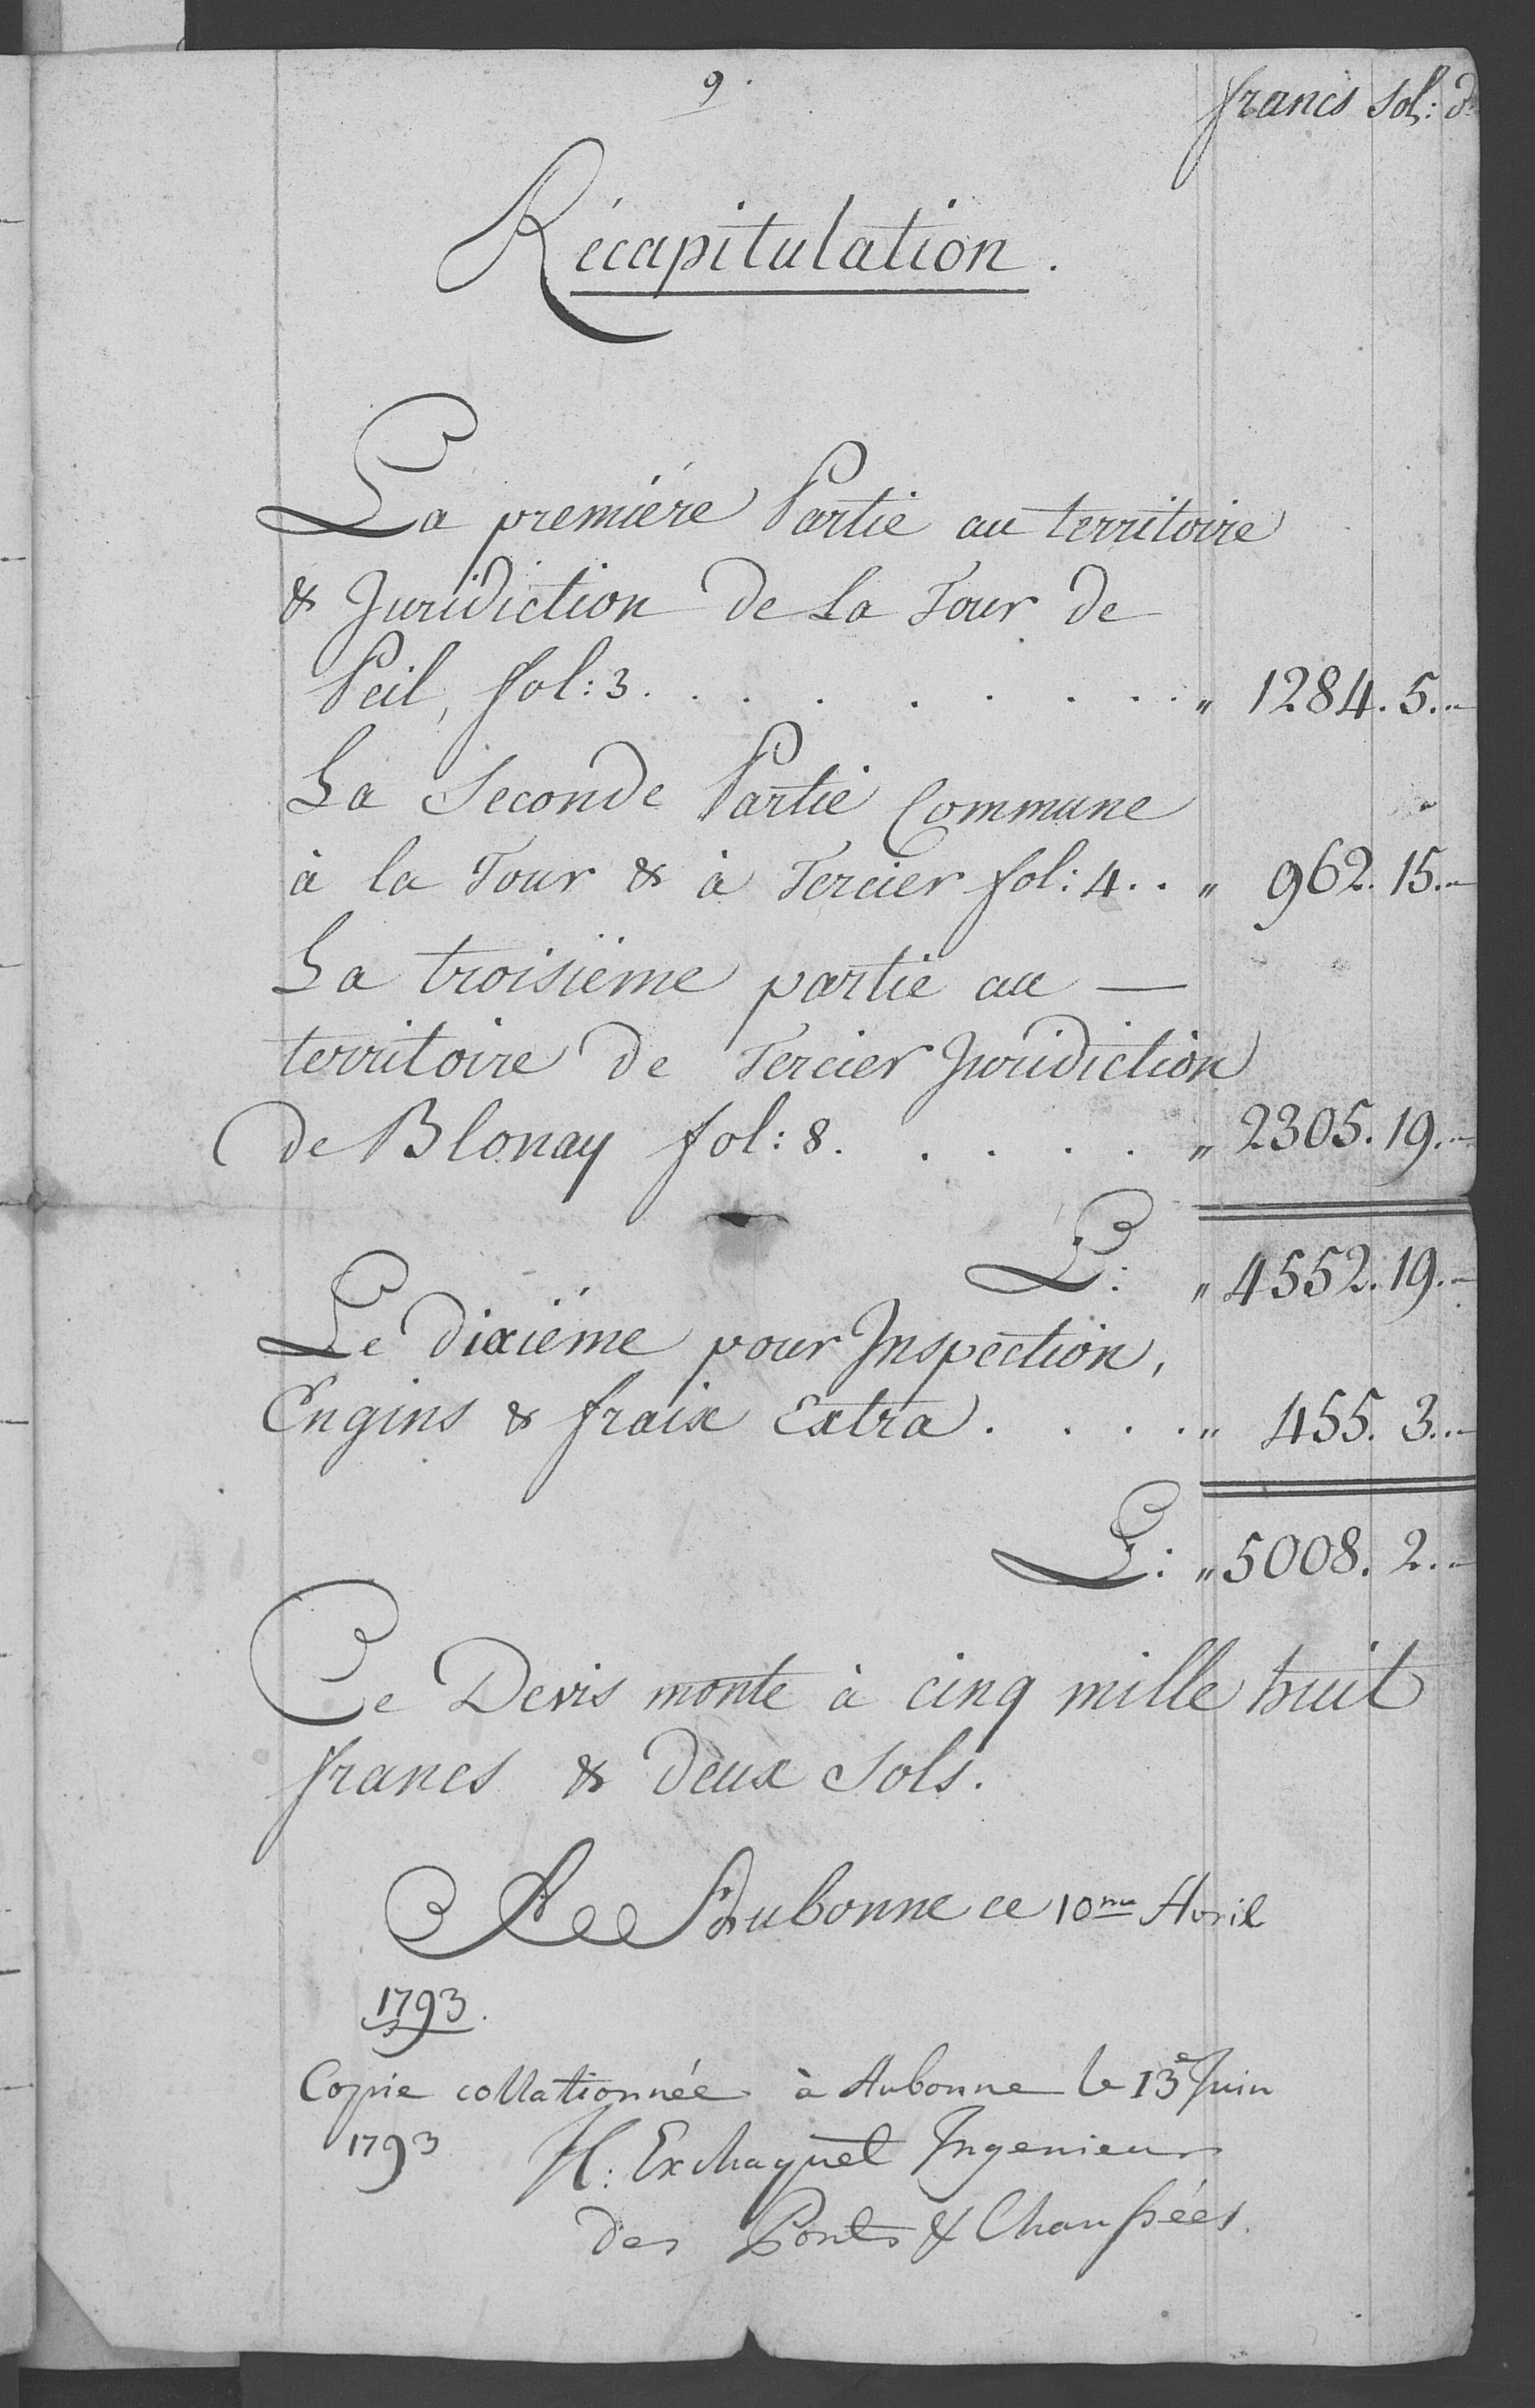 9.
francs sol: d.
Récapitulation.
La premiére Partie au territoire
& Juridiction de La Tour de
Peil, fol: 3. . . . . . . . " 1284. 5. "
La Seconde Partie Commune
à la Tour & à Tercier fol: 4. . " 962. 15. "
La troisiéme partie au —
territoire de Tercier Juridiction
de Blonay fol: 8. . . . . . " 2305. 19. "
L: " 4552. 19. "
Le dixiéme pour Inspection,
Engins & fraix Extra. . . . " 455. 3. "
L: " 5008. 2. "
Ce Devis monte à cinq mille huit
francs & deux Sols.
A Aubonne ce 10me Avril
1793.
Copie collationnée à Aubonne le 13e Juin
1793 H: Exchaquet Ingenieur
des Ponts & Chaussées.